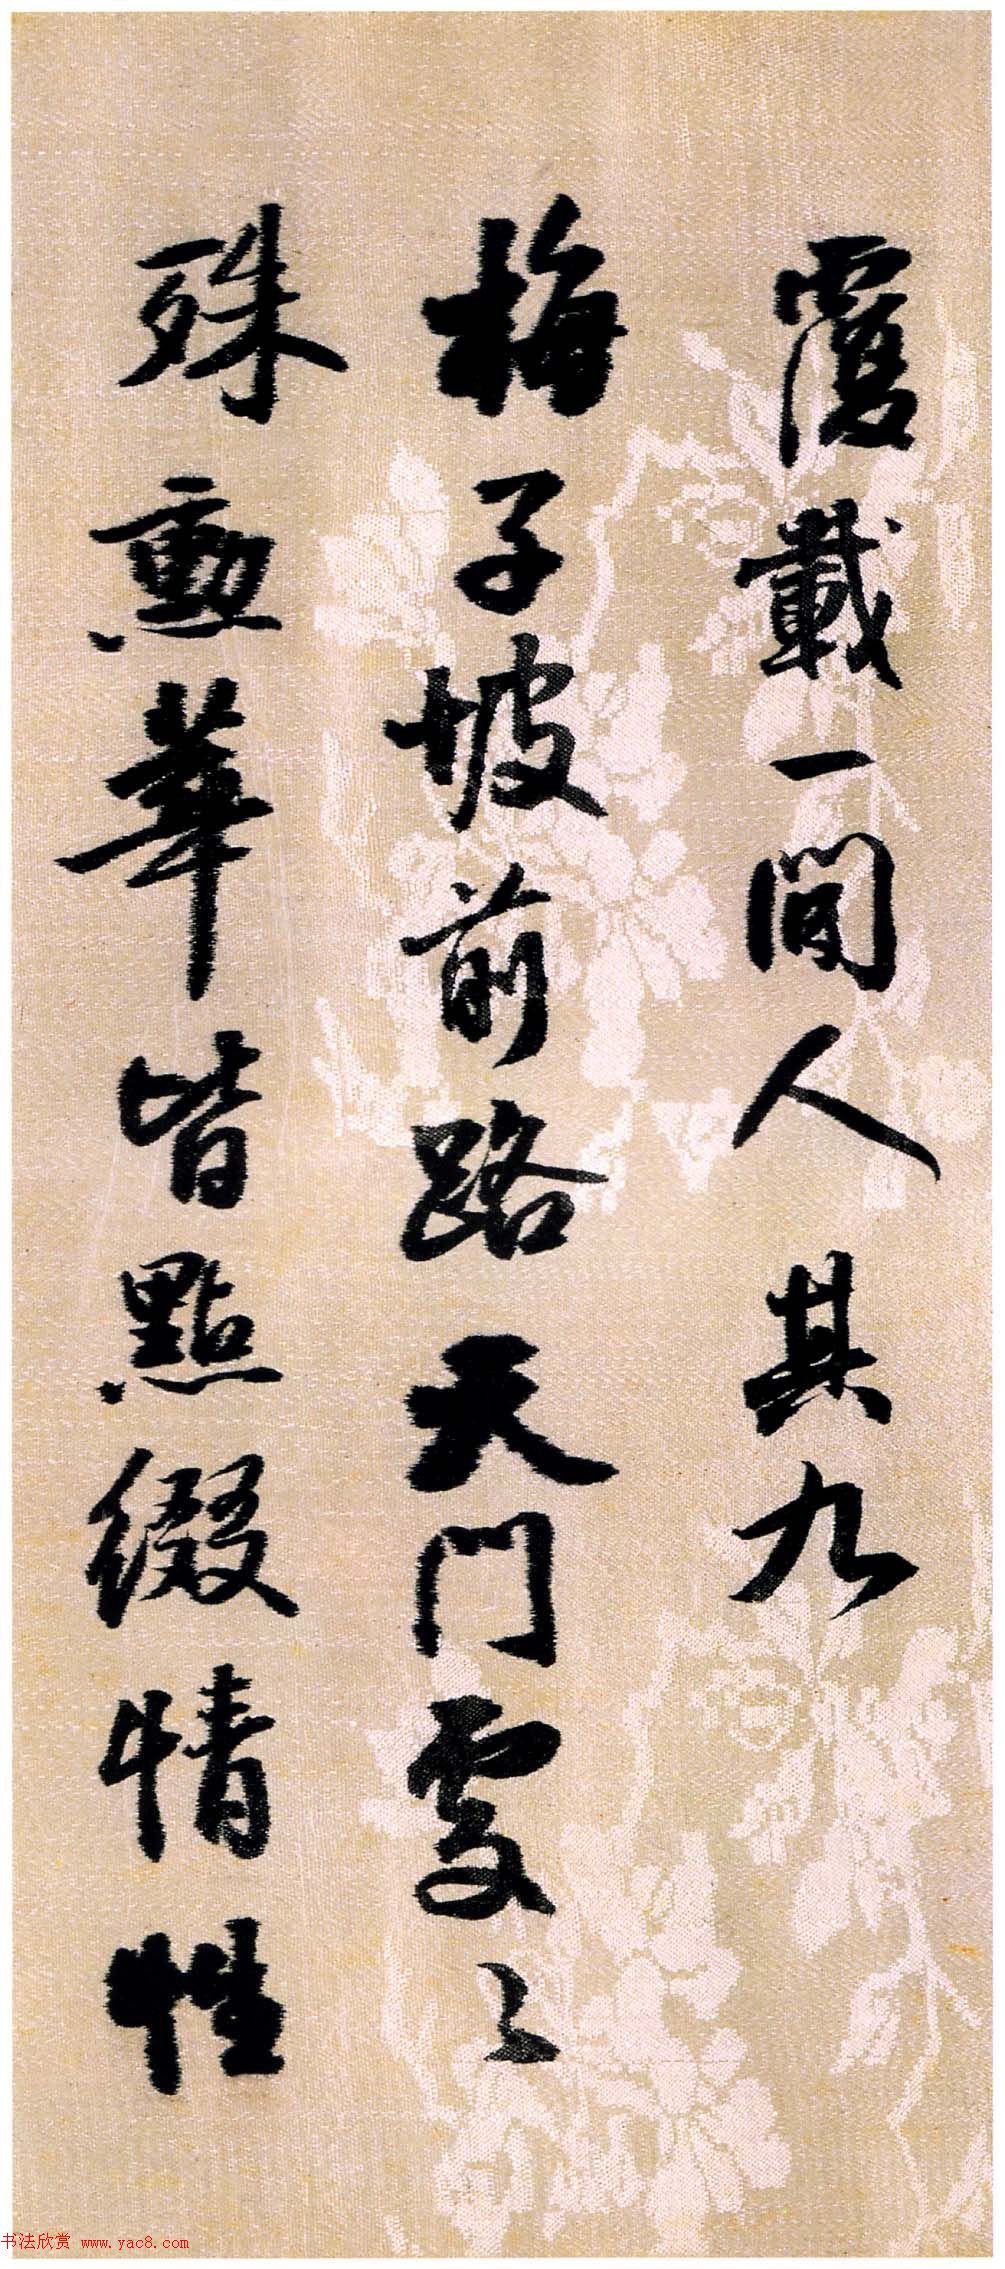 覆載一閒人 其九
梅子坡前路天門處〻
殊勳華皆點綴情性
书法欣赏 www.yac8.com